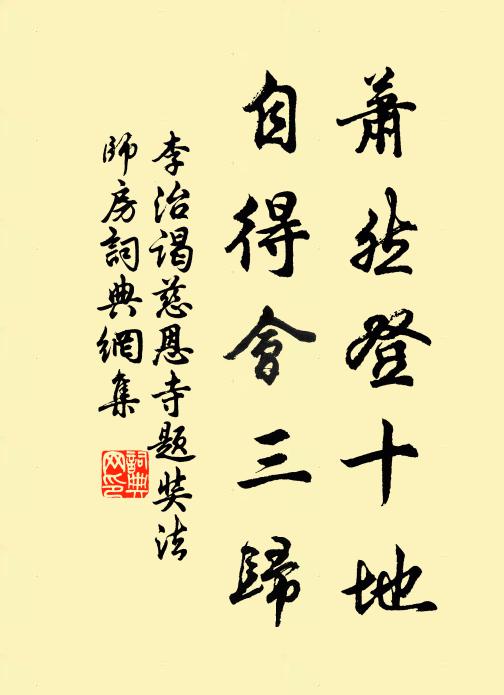 蕭然登十地
自得會三歸
李治謁慈恩寺題奘法
師房詞典網集
詞典
网印